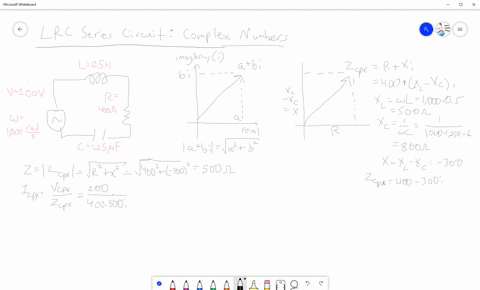 Microsoft Whiteboard
LRC Series Circuit: Complex Numbers
L=0.5H
V=200V
R=
400Ω
ω=
1,000 rad/s
C=1.25μF
imaginary(i)
bi
a+bi
a
real
|a+bi|=√a²+b²
X_L
-X_C
= X
R
Z_cpx
Z_cpx = R+Xi
=400+(X_L-X_C)i
X_L=ωL=1,000·0.5
=500Ω
X_C=1/ωC=1/1000·1.25e-6
=800Ω
X=X_L-X_C=-300
Z_cpx=400-300i
Z=|Z_cpx|=√R²+X²=√400²+(-300)²=500Ω
I_cpx=V_cpx/Z_cpx=200/400-300i